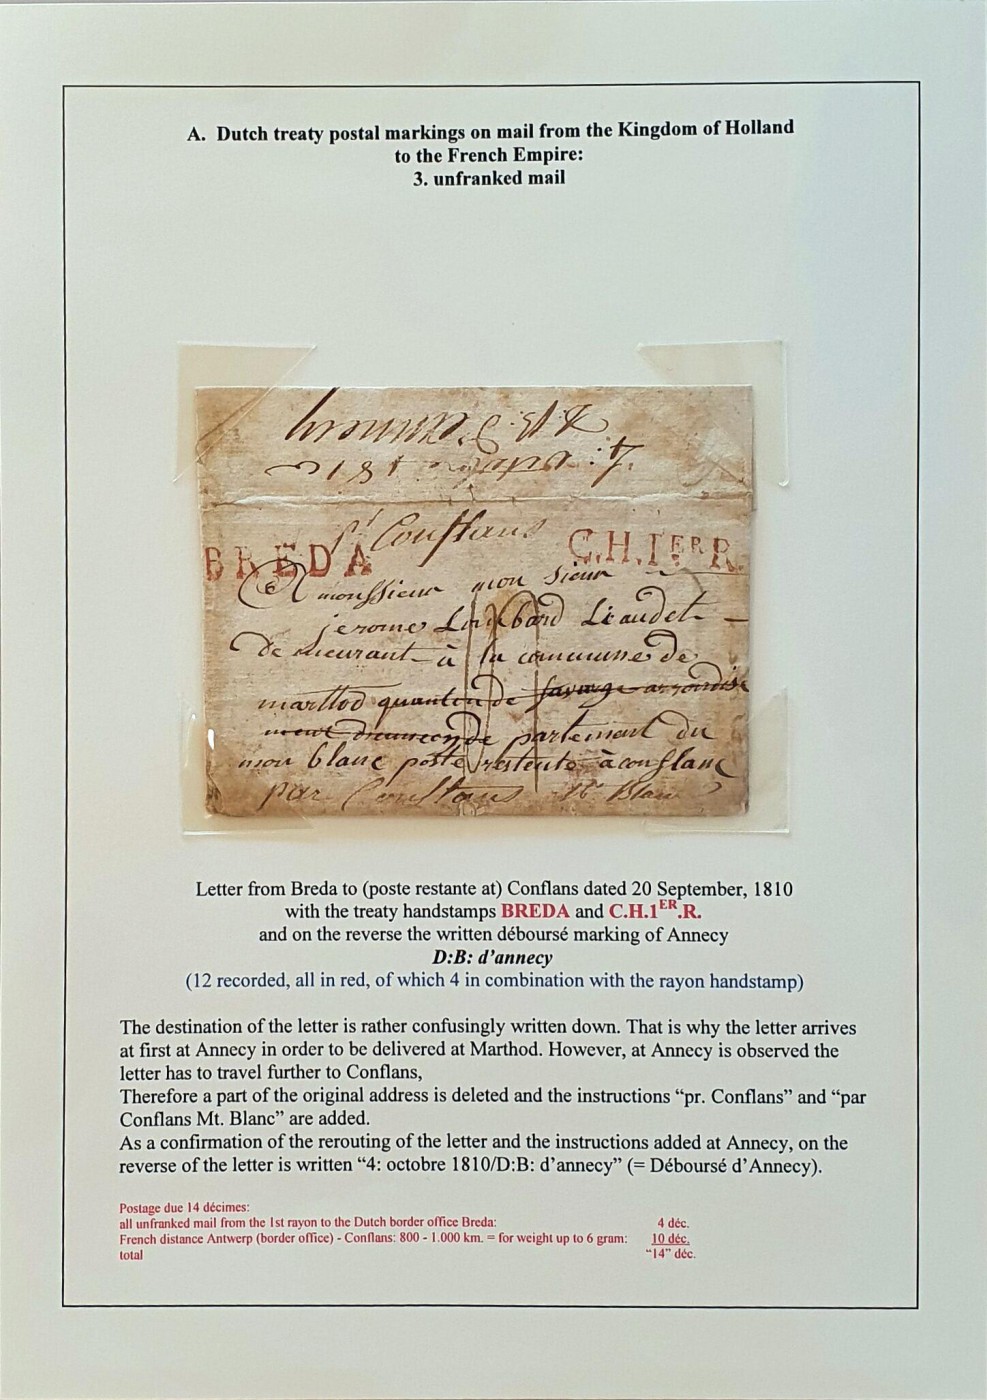 A. Dutch treaty postal markings on mail from the Kingdom of Holland
to the French Empire:
3. unfranked mail
D:B: d'annecy
4: 1810
pr Conflans
BREDA C.H.1ER.R.
A monssieur mon sieur
jerome Lombard Liaudet
demeurant à la commune de
marttod quanton de savoye arondise
ment d'annecy de partement du
mon blanc poste restente à conflanc
par Conflans Mt Blanc
Letter from Breda to (poste restante at) Conflans dated 20 September, 1810
with the treaty handstamps BREDA and C.H.1ER.R.
and on the reverse the written déboursé marking of Annecy
D:B: d’annecy
(12 recorded, all in red, of which 4 in combination with the rayon handstamp)
The destination of the letter is rather confusingly written down. That is why the letter arrives
at first at Annecy in order to be delivered at Marthod. However, at Annecy is observed the
letter has to travel further to Conflans,
Therefore a part of the original address is deleted and the instructions “pr. Conflans” and “par
Conflans Mt. Blanc” are added.
As a confirmation of the rerouting of the letter and the instructions added at Annecy, on the
reverse of the letter is written “4: octobre 1810/D:B: d’annecy” (= Déboursé d’Annecy).
Postage due 14 décimes:
all unfranked mail from the 1st rayon to the Dutch border office Breda: 4 déc.
French distance Antwerp (border office) - Conflans: 800 - 1.000 km. = for weight up to 6 gram: 10 déc.
total “14” déc.